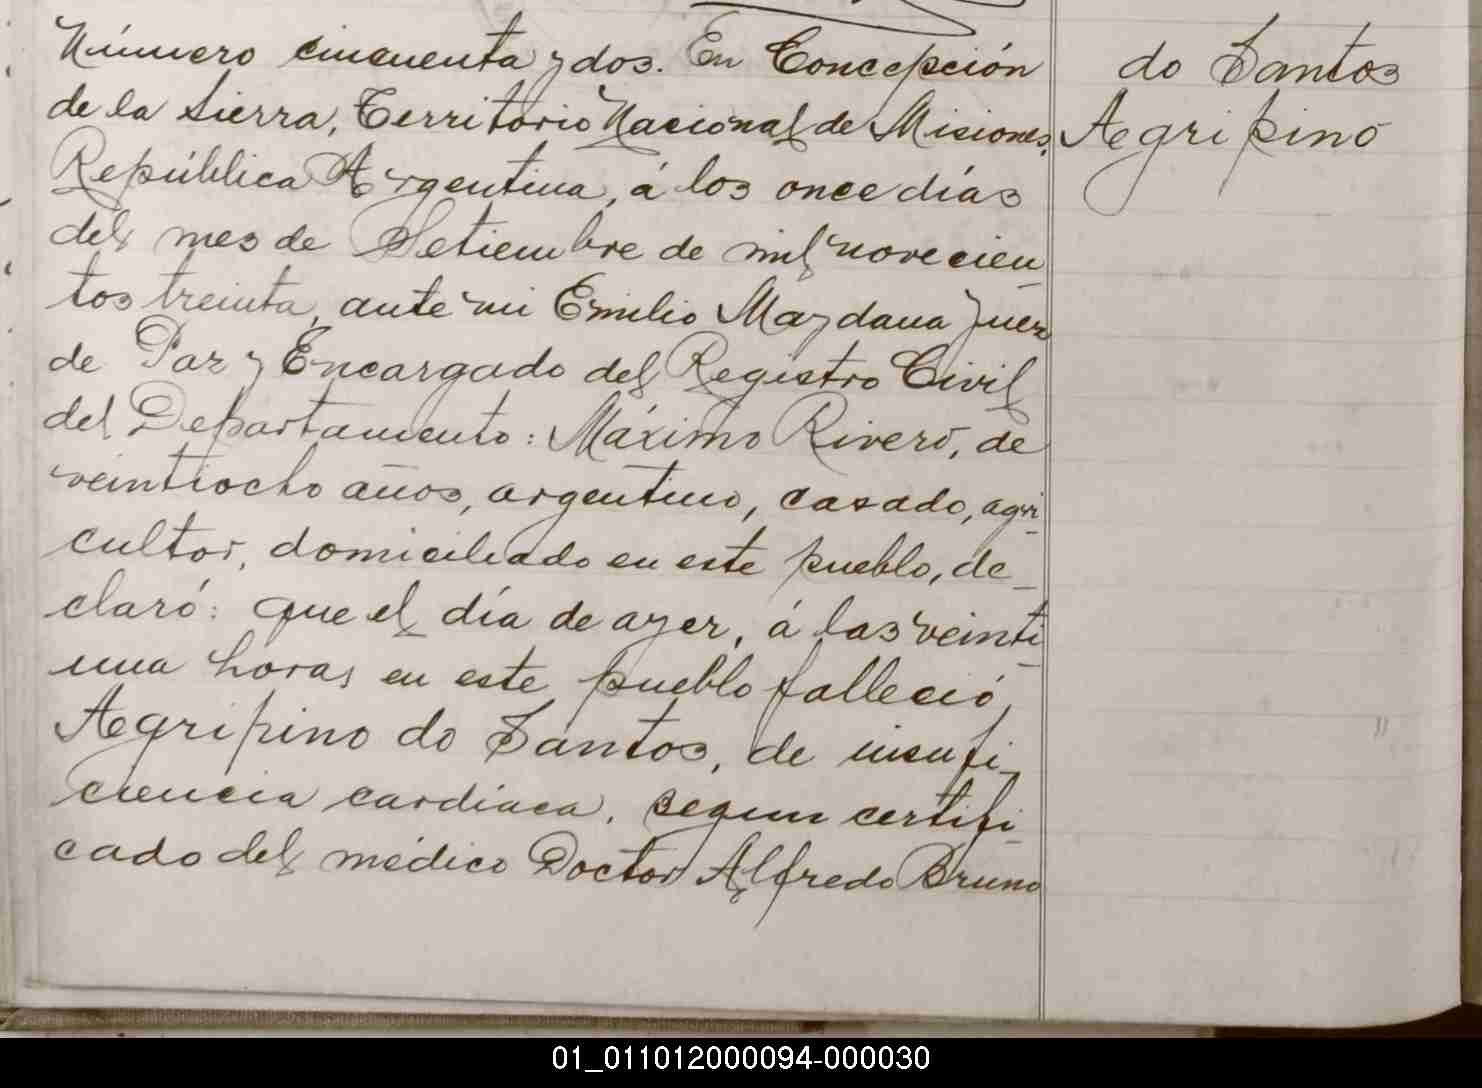 Número cincuenta y dos. En Concepción
de la Sierra, Territorio Nacional de Misiones,
República Argentina, á los once días
del mes de Setiembre de mil novecien_
tos treinta, ante mi Emilio Maydana Juez
de Paz y Encargado del Registro Civil
del Departamento: Máximo Rivero, de
veintiocho años, argentino, casado, agri_
cultor, domiciliado en este pueblo, de_
claró: que el día de ayer, á las veinti_
una horas en este pueblo falleció,
Agripino do Santos, de insufi_
ciencia cardíaca, segun certifi_
cado del médico Doctor Alfredo Bruno
do Santos
Agripino
01_011012000094-000030